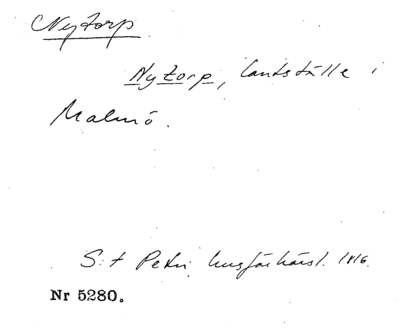 Nytorp
Nytorp, lantställe i
Malmö.
S:t Petri husförhörsl. 1816.
Nr 5280.